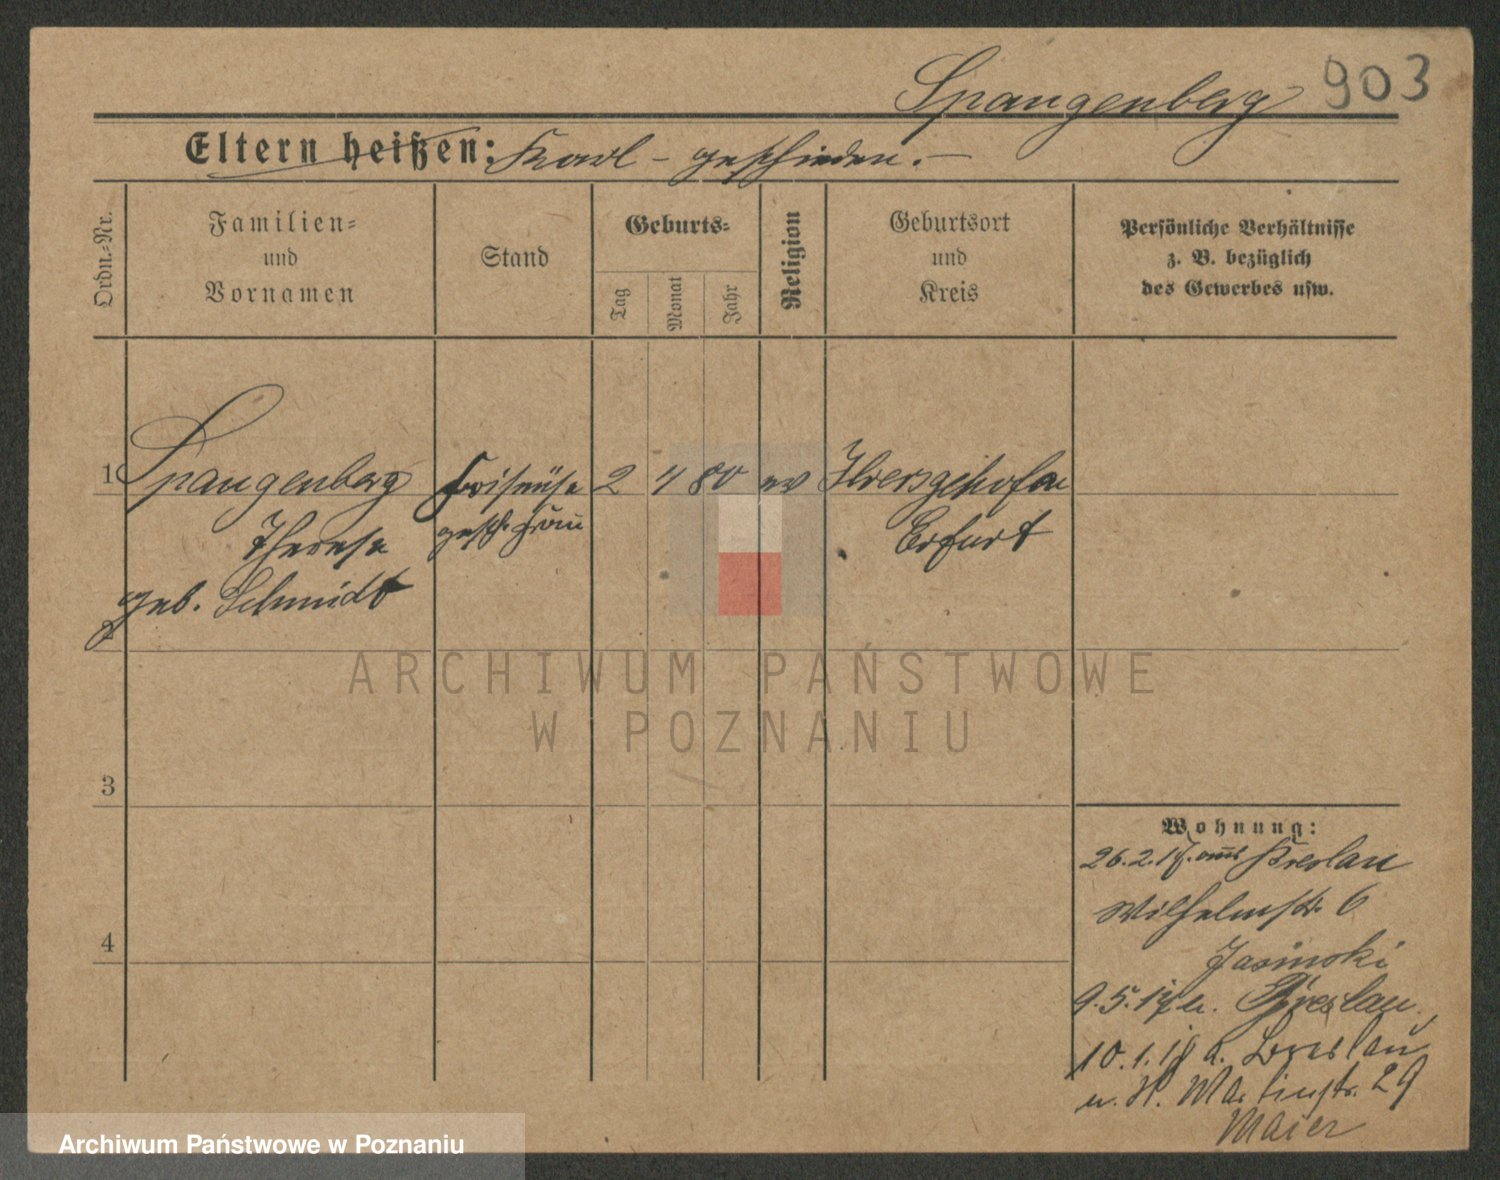 Spangenberg 903
Eltern heißen: Karl - geschieden. -
Ordn.-Nr.
Familien-
und
Vornamen
Stand
Geburts-
Tag
Monat
Jahr
Religion
Geburtsort
und
Kreis
Persönliche Verhältnisse
z. B. bezüglich
des Gewerbes usw.
1 Spangenberg Friseuse 2 4 80 ev Ilversgehofen
Therese gesch. Frau Erfurt
geb. Schmidt
2
3
4
Wohnung:
26.2.17. aus Breslau
Wilhelmstr. 6
Jasinski
9.5.17 n. Breslau.
10.1.18 a. Breslau
n. St. Martinstr. 29
Maier
ARCHIWUM PAŃSTWOWE
W POZNANIU
Archiwum Państwowe w Poznaniu